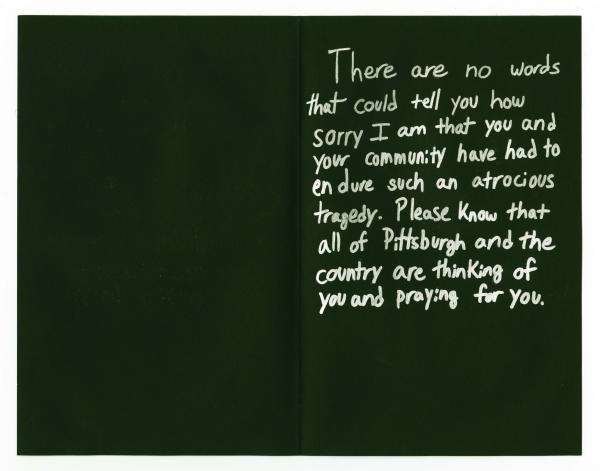 There are no words
that could tell you how
sorry I am that you and
your community have had to
endure such an atrocious
tragedy. Please know that
all of Pittsburgh and the
country are thinking of
you and praying for you.